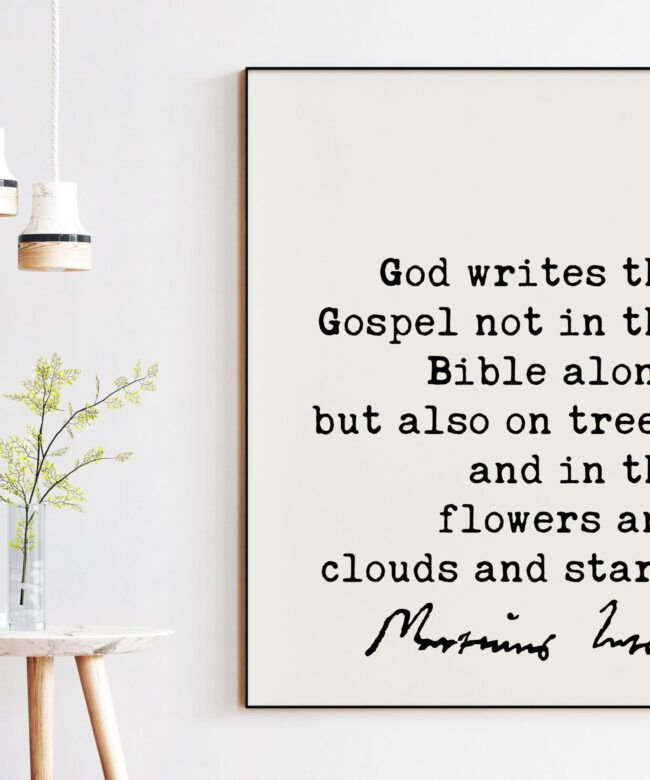 God writes th
Gospel not in th
Bible alon
but also on tree
and in th
flowers an
clouds and star
Martinus